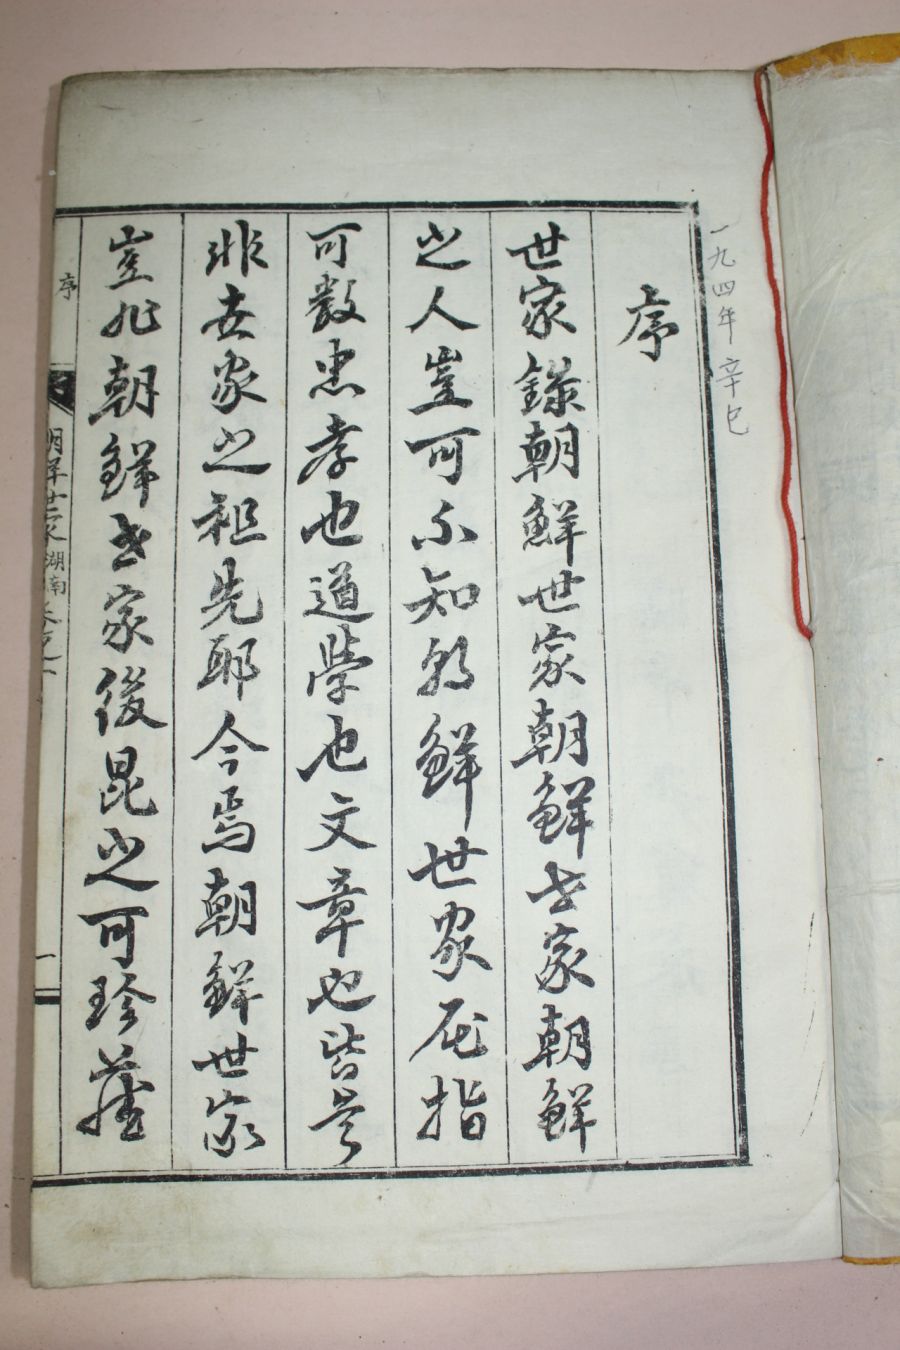 一九四年辛巳
序
世家錄朝鮮世家朝鮮世家朝鮮
之人豈可不知朝鮮世家屈指
可數忠孝也道學也文章也皆是
非世家之祖先耶今焉朝鮮世家
豈非朝鮮世家後昆之可珍藏
序
朝鮮世家 湖南 卷之一
一